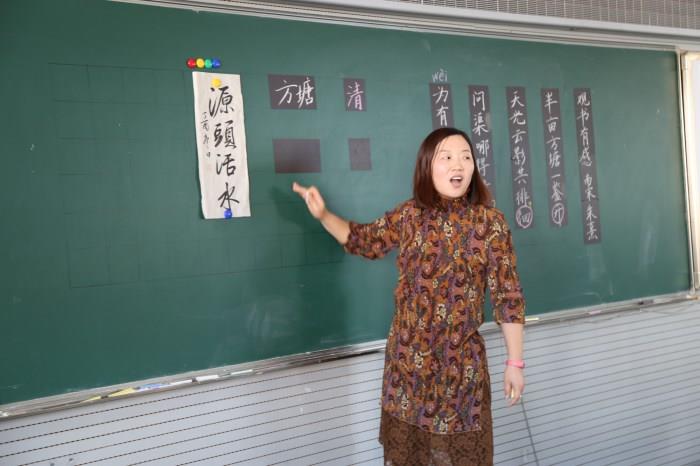 观书有感 南宋朱熹
半亩方塘一鉴开
天光云影共徘徊
问渠哪得
wèi
为有
清
方塘
源頭活水